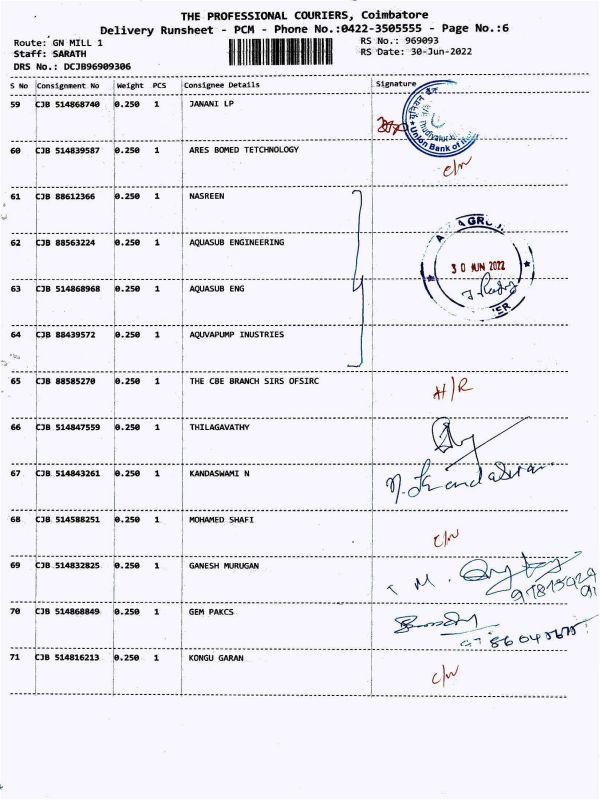 THE PROFESSIONAL COURIERS, Coimbatore
Delivery Runsheet - PCM - Phone No.:0422-3505555 - Page No.:6
Route: GN MILL 1
RS No.: 969093
Staff: SARATH
RS Date: 30-Jun-2022
DRS No.: DCJB96909306
S No Consignment No Weight PCS Consignee Details Signature
59 CJB 514868740 0.250 1 JANANI LP
Union Bank of
60 CJB 514839587 0.250 1 ARES BOMED TETCHNOLOGY C/N
61 CJB 88612366 0.250 1 NASREEN
62 CJB 88563224 0.250 1 AQUASUB ENGINEERING
AGRO
30 JUN 2022
63 CJB 514868968 0.250 1 AQUASUB ENG
64 CJB 88439572 0.250 1 AQUVAPUMP INUSTRIES
65 CJB 88585270 0.250 1 THE CBE BRANCH SIRS OFSIRC H/R
66 CJB 514847559 0.250 1 THILAGAVATHY
67 CJB 514843261 0.250 1 KANDASWAMI N
68 CJB 514588251 0.250 1 MOHAMED SHAFI C/N
69 CJB 514832825 0.250 1 GANESH MURUGAN
70 CJB 514868849 0.250 1 GEM PAKCS
71 CJB 514816213 0.250 1 KONGU GARAN C/N